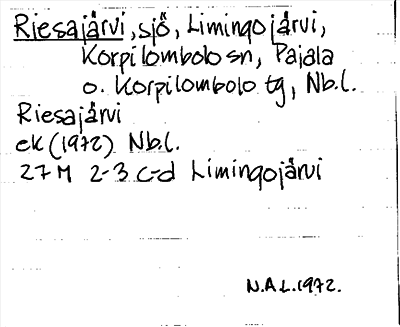 Riesajärvi, sjö, Limingojärvi,
Korpilombolo sn, Pajala
o. Korpilombolo tg, Nb.l.
Riesajärvi
ek (1972) Nb.l.
27 M 2-3 c-d Limingojärvi
N.A.L. 1972.